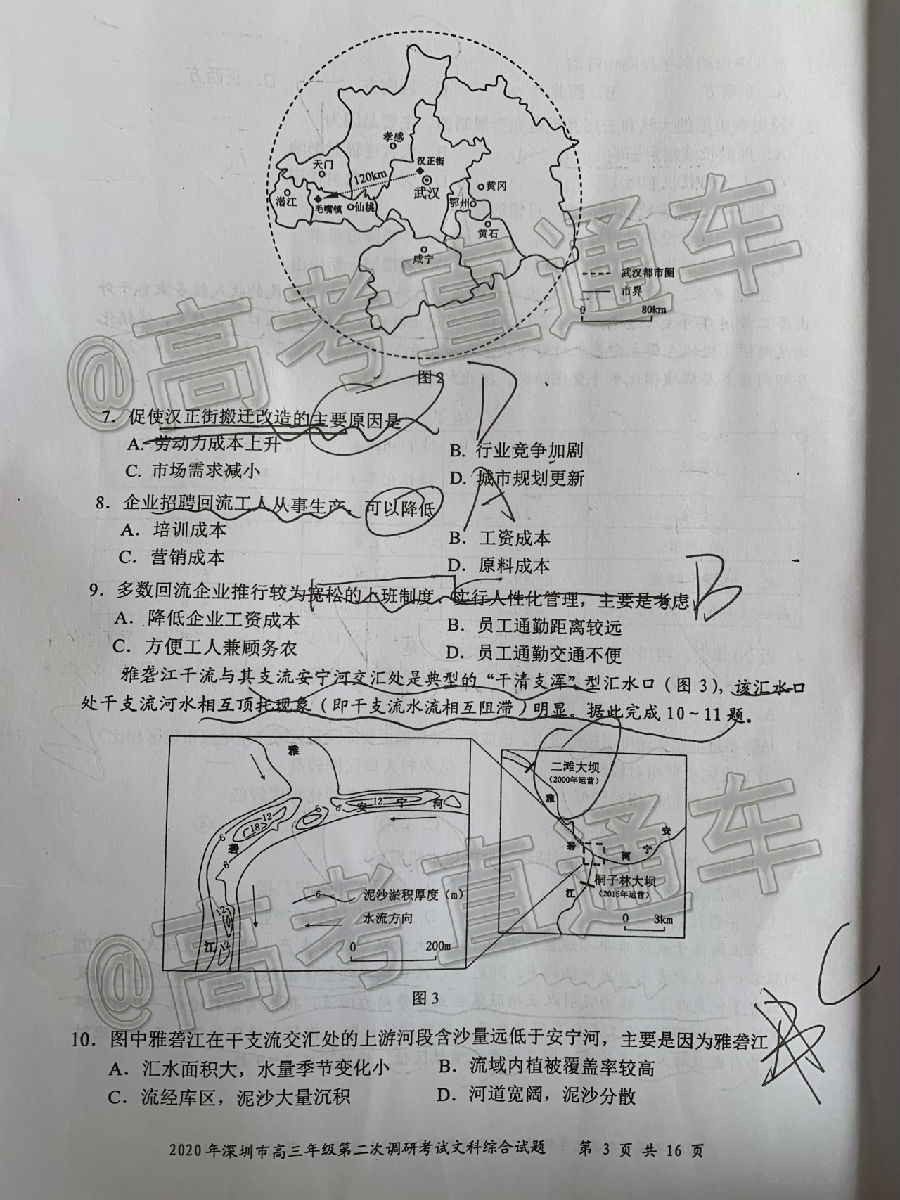 孝感
天门
汉正街
120km
武汉
黄冈
潜江
毛嘴镇
仙桃
鄂州
黄石
咸宁
武汉都市圈
市界
0 80km
图2
7．促使汉正街搬迁改造的主要原因是
D
A. 劳动力成本上升
B. 行业竞争加剧
C. 市场需求减小
D. 城市规划更新
8．企业招聘回流工人从事生产，可以降低
A
A．培训成本
B．工资成本
C．营销成本
D．原料成本
9．多数回流企业推行较为宽松的上班制度，实行人性化管理，主要是考虑
B
A．降低企业工资成本
B．员工通勤距离较远
C．方便工人兼顾务农
D．员工通勤交通不便
雅砻江干流与其支流安宁河交汇处是典型的“干清支浑”型汇水口（图3），该汇水口
处干支流河水相互顶托现象（即干支流水流相互阻滞）明显。据此完成10～11题。
雅
砻
江
安 宁 河
6
12
18
12
6
6
6
12
12
6 泥沙淤积厚度（m）
水流方向
0 200m
二滩大坝
（2000年运营）
雅
砻
江
安
宁
河
桐子林大坝
（2015年运营）
0 3km
图3
C
10．图中雅砻江在干支流交汇处的上游河段含沙量远低于安宁河，主要是因为雅砻江
A．汇水面积大，水量季节变化小
B．流域内植被覆盖率较高
C．流经库区，泥沙大量沉积
D．河道宽阔，泥沙分散
2020年深圳市高三年级第二次调研考试文科综合试题 第 3 页 共 16 页
@高考直通车
@高考直通车